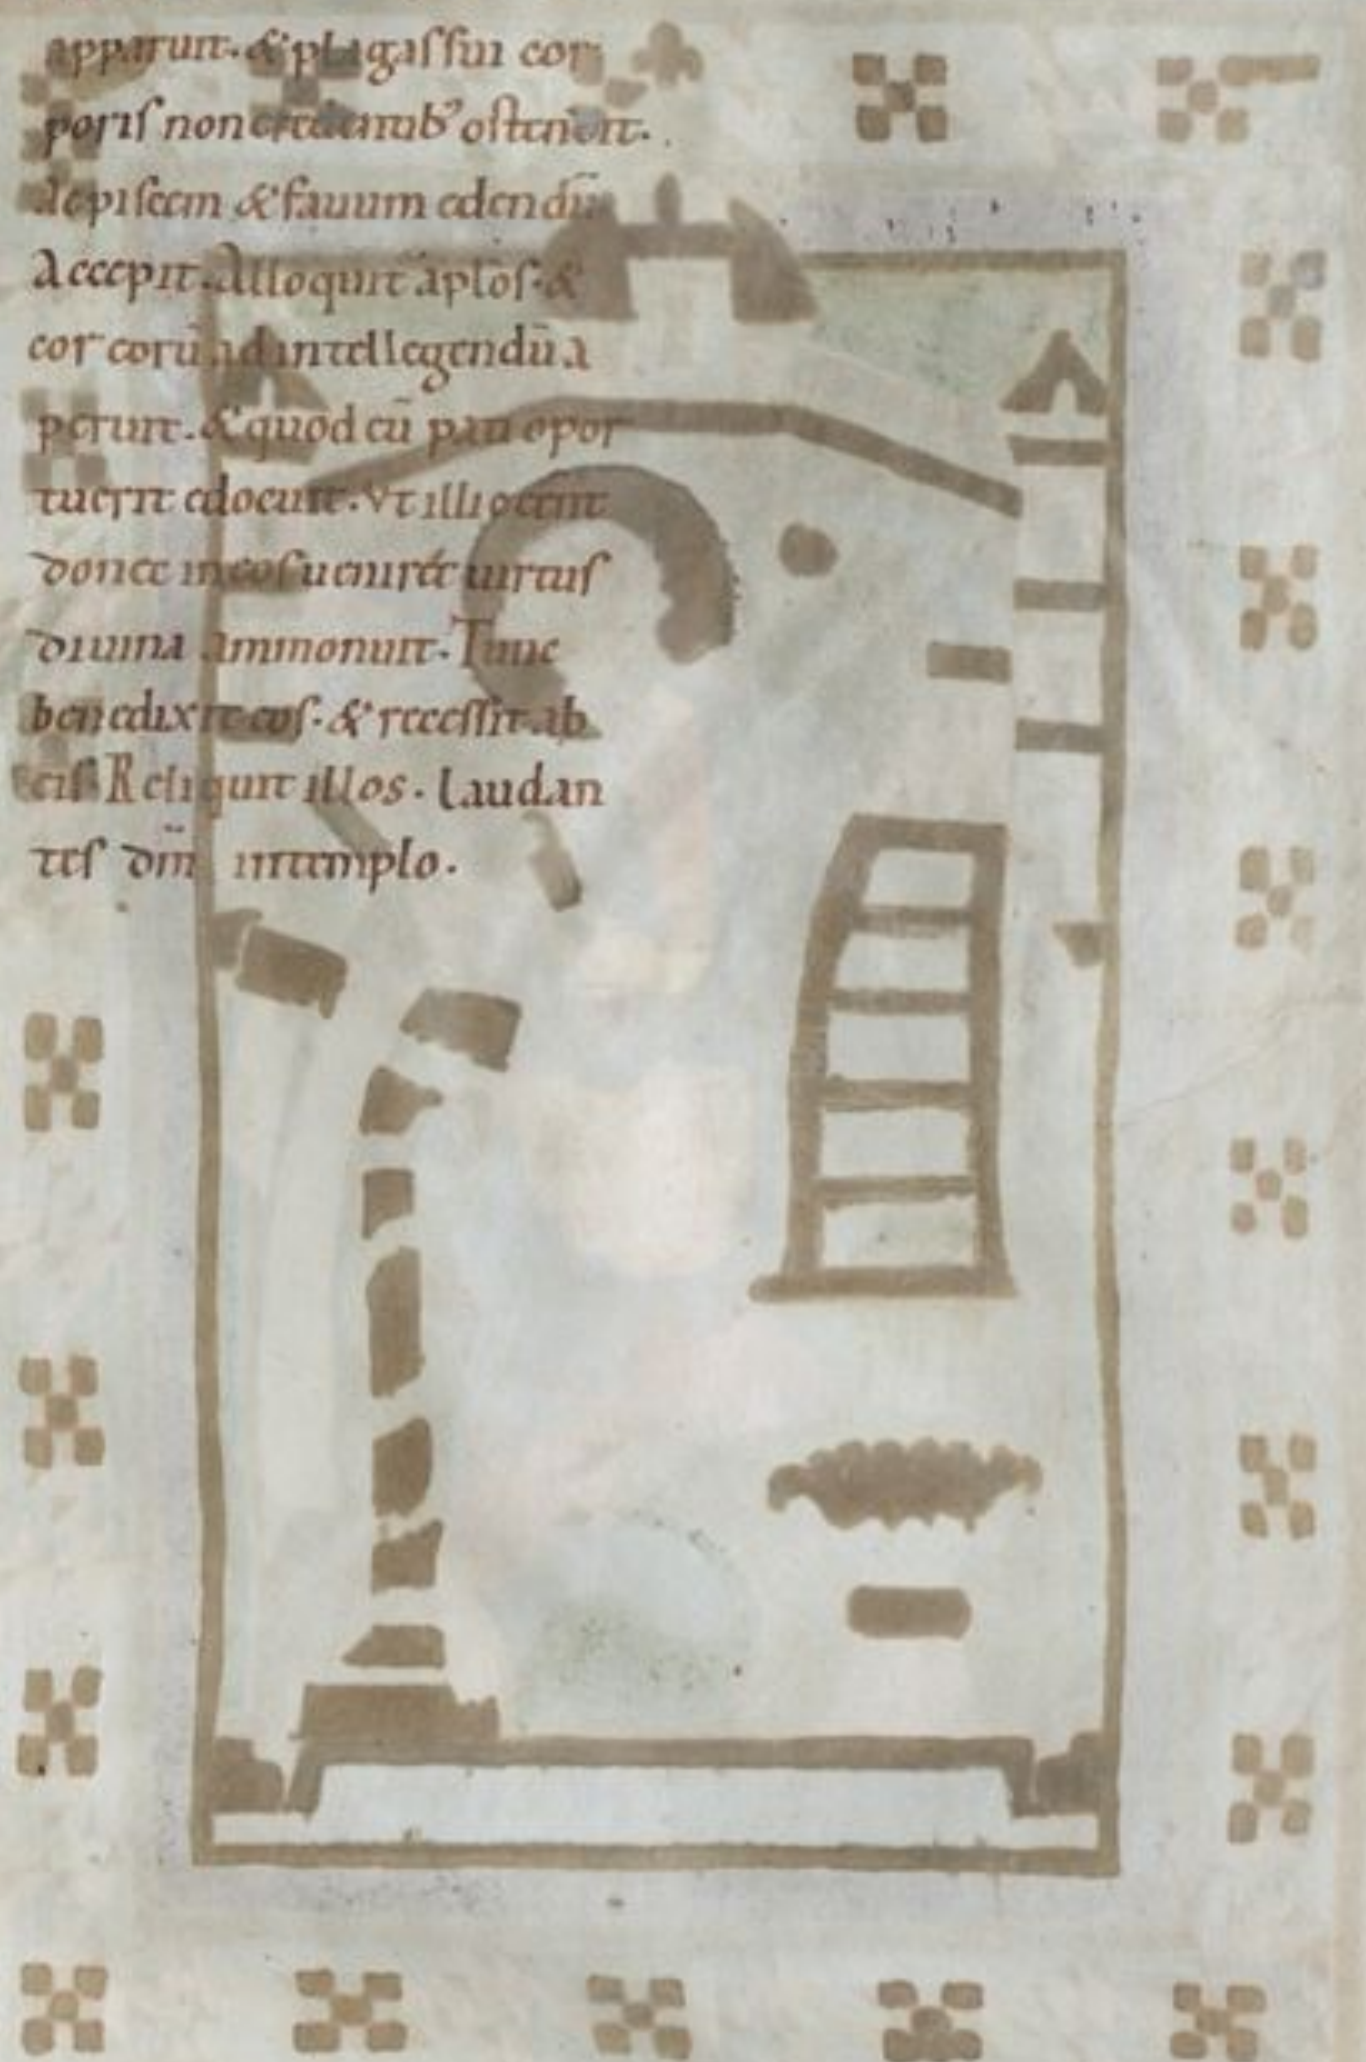 apparuit. & plagas sui cor
poris non credentib' ostendit.
de piscem & fauum edendū
Accepit. Alloquit̄ ap̄los. &
cor eorū ad intellegendū a
peruit. & quod eū pati opor
tuerit edocuit. Vt illi ocent
donec in eos ueniret uirtus
diuina ammonuit. Tunc
benedixit eos. & recessit ab
eis Reliquit illos. laudan
tes dm̄ in templo.